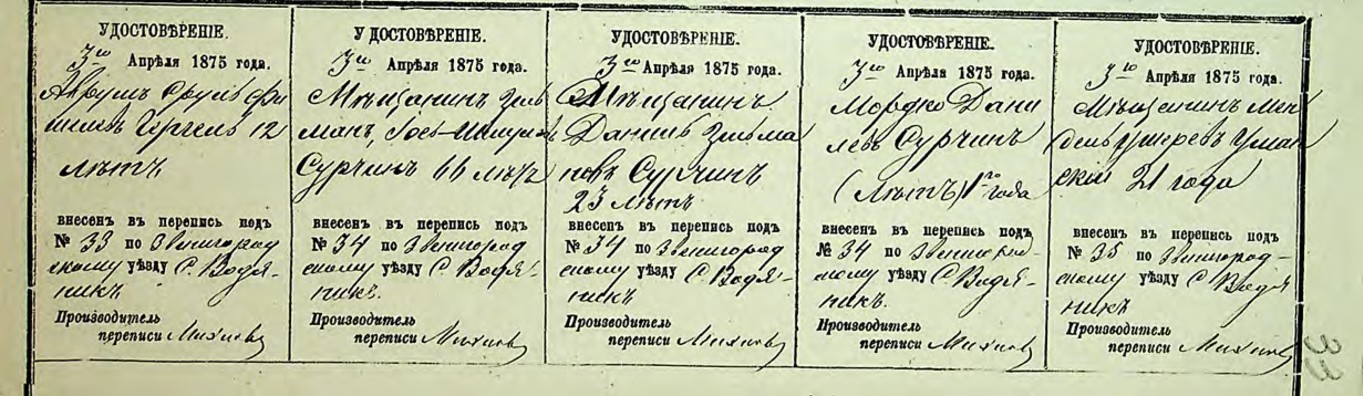 УДОСТОВѢРЕНІЕ.
3го Апрѣля 1875 года.
Аврумъ Сруль Фи
шилевъ Гергель 12
лѣтъ
внесенъ въ перепись подъ
№ 33 по Звенигород
скому уѣзду С. Водя-
никъ
Производитель
переписи
УДОСТОВѢРЕНІЕ.
3го Апрѣля 1875 года.
Мѣщанинъ Зель
манъ
Сурчинъ 66 лѣтъ
внесенъ въ перепись подъ
№ 34 по Звенигород
скому уѣзду С. Водя-
никъ.
Производитель
переписи
УДОСТОВѢРЕНІЕ.
3го Апрѣля 1875 года.
Мѣщанинъ
Даниль Зельма
новъ Сурчинъ
23 лѣтъ
внесенъ въ перепись подъ
№ 34 по Звенигород
скому уѣзду С. Водя-
никъ
Производитель
переписи
УДОСТОВѢРЕНІЕ.
3го Апрѣля 1875 года.
Мордко Дани
левъ Сурчинъ
(лѣтъ) 1го года
внесенъ въ перепись подъ
№ 34 по Звенигород-
скому уѣзду С. Водя-
никъ.
Производитель
переписи
УДОСТОВѢРЕНІЕ.
3го Апрѣля 1875 года.
Мѣщанинъ Мен
дель Ушеревъ Уман
скій 21 года
внесенъ въ перепись подъ
№ 35 по Звенигород-
скому уѣзду С. Водя
никъ
Производитель
переписи